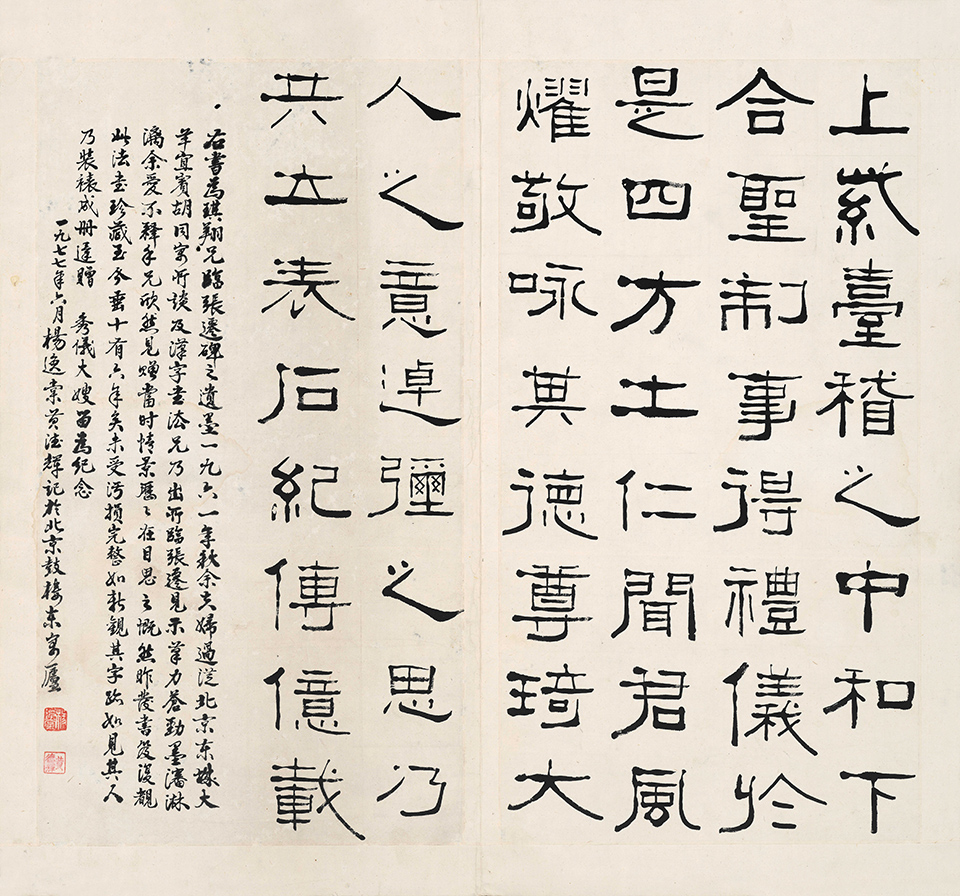 上紫臺稽之中和下
合聖制事得禮儀於
是四方士仁聞君風
燿敬咏其德尊琦大
人之意逴彌之思乃
共立表石紀傳億載
右書為琪翔兄臨張遷碑之遺墨一九六一年秋余夫婦過從北京东城大
羊宜賓胡同寓所談及漢字書法兄乃出所臨張遷見示筆力蒼勁墨瀋淋
漓余愛不釋手兄欣然見贈當时情景歷々在目思之慨然昨發書笈復觀
此法書珍藏至今垂十有六年矣未受污損完整如新觀其字跡如見其人
乃裝裱成冊逕贈 秀儀大嫂留為紀念
一九七七年六月楊逸棠黃德輝記於北京鼓樓东寓廬